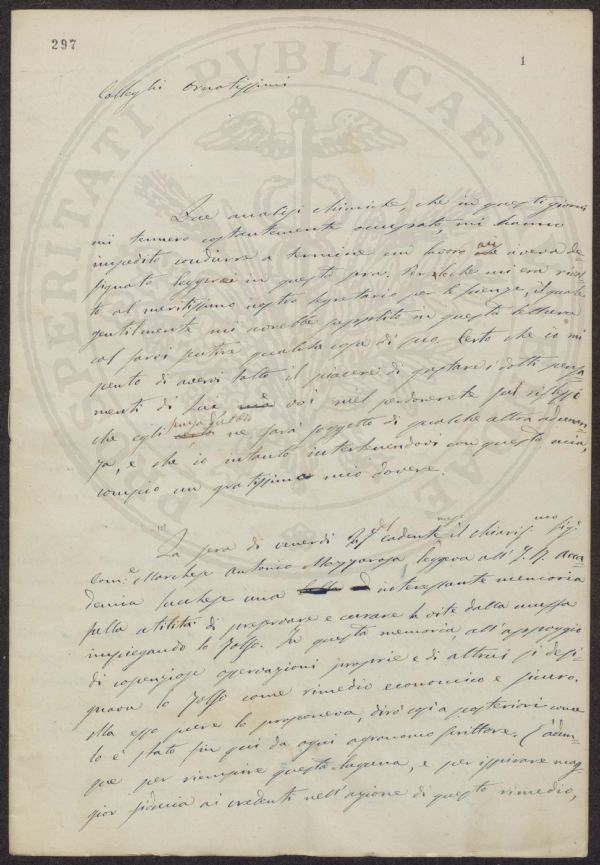 297
1
Colleghi ornatissimi
Due analisi chimiche, che in questi giorni
mi tennero costantemente occupato, mi hanno
impedito condurre a termine un lavoro che aveva de-
signato leggere in questa sera. Per lo che mi era rivol-
to al meritissimo nostro segretario per le scienze, il quale
gentilmente mi avrebbe supplito in questa lettura
col farvi sentire qualche cosa di suo. Certo che io mi
pento di avervi tolto il piacere di gustare i dotti pensa
menti di Lui voi mel perdonerete sul riflesso
che egli senza dubbio ne farà soggetto di qualche altra adunan-
za, e che io intanto intertenendovi con questa mia,
compio un gratissimo mio dovere.
La sera di venerdì del cadente mese il chiariss.mo sig.
Com.e Marchese Antonio Mazzarosa, leggeva all' I. R. Acca
demia lucchese una interessante memoria
sulla utilità di preservare e curare la vite dalla muffa
impiegando lo Zolfo. In questa memoria all' appoggio
di copiose osservazioni proprie e di altrui si desi-
gnava lo Zolfo come rimedio economico e sicuro.
Ma esso pure lo proponeva, dirò così a posteriori come
lo è stato fin qui da ogni agronomo scrittore. È adun-
que per riempire questa laguna, e per ispirare mag
gior fiducia ai credenti nell' azione di questo rimedio,
PROSPERITATI PVBLICAE